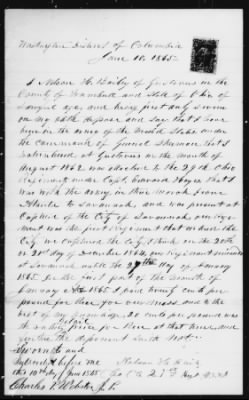 Washington District of Columbia
June 10, 1865
I Nelson H. Baily of Gustavus in the
County of Trumbull and State of Ohio of
lawful age, and being first duly sworn
on my oath depose and say that I have
been in the army of the United States under
the command of General Sherman that I
volunteered at Gustavus in the month of
August 1862 was attached to the 29th Ohio
Regiment under Capt. That I
was with the army in their march from
Atlanta to Savannah, and was present at
Capture of the City of Savannah our reg-
ment was the first regiment that entered the
City, we captured the City I think on the 20th
or 21st day of December 1864, our regiment remained
at Savannah until the 27th day of January
1865. In the first part of the month of
January 1865 I and twenty cents per
pound for Rice for our mess, and to the
best of my knowledge 20 cents per pound was
the price for Rice at that time, and
further the deponent saith not.
Sworn to and
subscribed before me Nelson H. Baily
this 10th day of June 1865 Co. 29th Regt.
Charles Webster J.P.